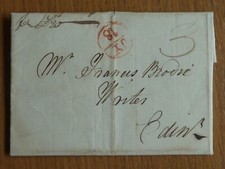 3
Mr. Francis Brodie
Writer
Edinr.